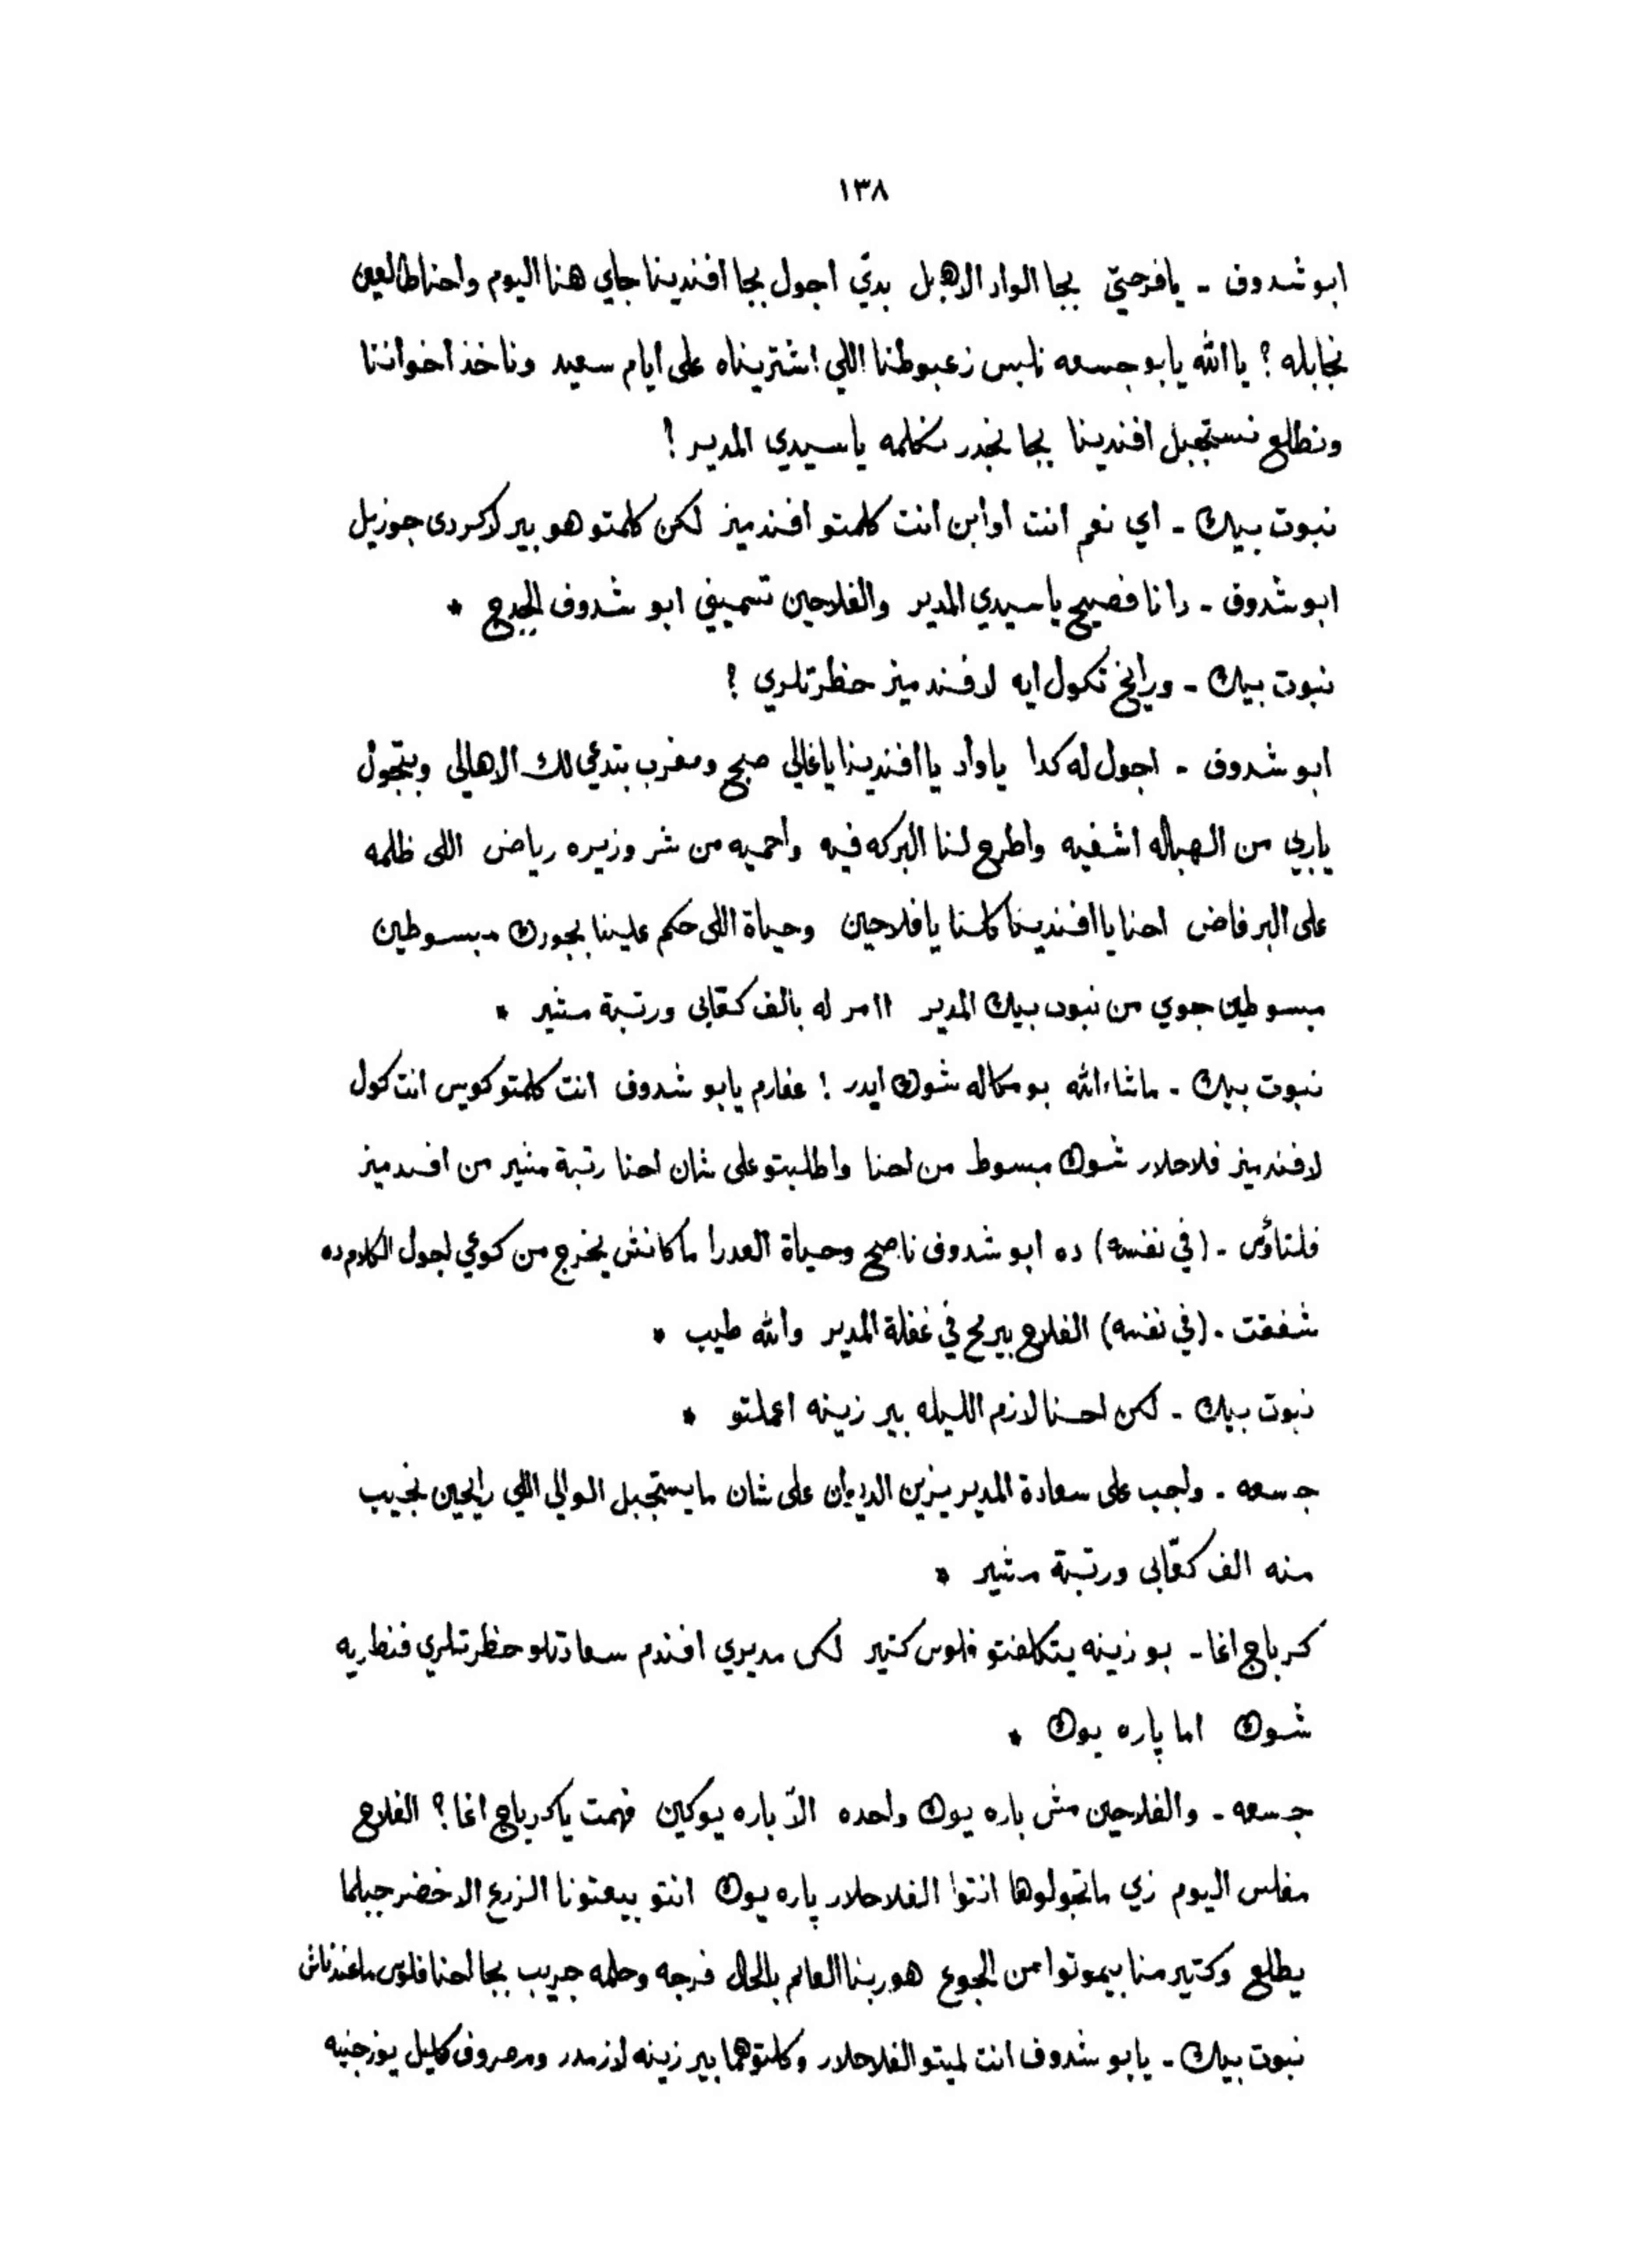 ١٣٨
ابو شدوف - يافرحتي بجا الواد الاهبل بدي اجول بجا افندينا جاي هنا اليوم واحنا طالعين
نجابله ؟ يا الله يابو جسعه نلبس زعبوطنا اللي اشتريناه على ايام سعيد وناخذ اخواننا
ونطلع نستجبل افندينا بجا نجدر نكلمه ياسيدي المدير !
نبوت بيك - اي نعم انت اوابن انت كلمتو افندميز لكن كلمتو هو بير لاكردى جوزيل
ابو شدوف - دانا فصيح ياسيدي المدير والفلاحين تسميني ابو شدوف الجدع *
نبوت بيك - ورايح تكول ايه لافندميز حظرتلري ؟
ابو شدوف - اجول له كدا ياواد يا افندينا ياغالي صبح ومغرب بتدعي لك الاهالي وبتجول
ياربي من الهباله اشفيه واطرح لنا البركه فيه واحميه من شر وزيره رياض اللى ظلمه
على البر فاض احنا يا افندينا كلنا يا فلاحين وحياة اللى حكم علينا بجورك مبسوطين
مبسوطين جوي من نبوت بيك المدير اامر له بالف كقابى ورتبة مشير *
نبوت بيك - ماشاءالله بو مكاله شوك ايدر ! عفارم يابو شدوف انت كلمتو كويس انت كول
لافندميز فلاحلار شوك مبسوط من احنا واطلبتو على شان احنا رتبة مشير من افندميز
فلتاؤس - (في نفسه) ده ابو شدوف ناصح وحياة العدرا ماكانش يخرج من كوعي لجول الكلام ده
شفقت - (في نفسه) الفلاح بيرمح في غفلة المدير والله طيب *
نبوت بيك - لكن احنا لازم الليله بير زينه اعملتو *
جسعه - واجب على سعادة المدير يزين الديوان على شان مايستجبل الوالى اللي رايحين نجيب
منه الف كقابى ورتبة مشير *
كرباج اغا - بو زينه يتكلفتو فلوس كتير لكن مديري افندم سعادتلو حظرتلري فنطاريه
شوك اما پاره يوك *
جسعه - والفلاحين مش باره يوك واحده الا باره يوكين فهمت ياكرباج اغا ؟ الفلاح
مفلس اليوم زي ماتجولوها انتوا الفلاحلار پاره يوك انتو بيعتونا الزرع الاخضر جبلما
يطلع وكتير منا بيموتوا من الجوع هو ربنا العالم بالحال فرجه وحلمه جريب بجا احنا فلوس ماعندناش
نبوت بيك - يابو شدوف انت لميتو الفلاحلار وكلمتو هما بير زينه لازمدر ومصروف كليل يوز جنيه